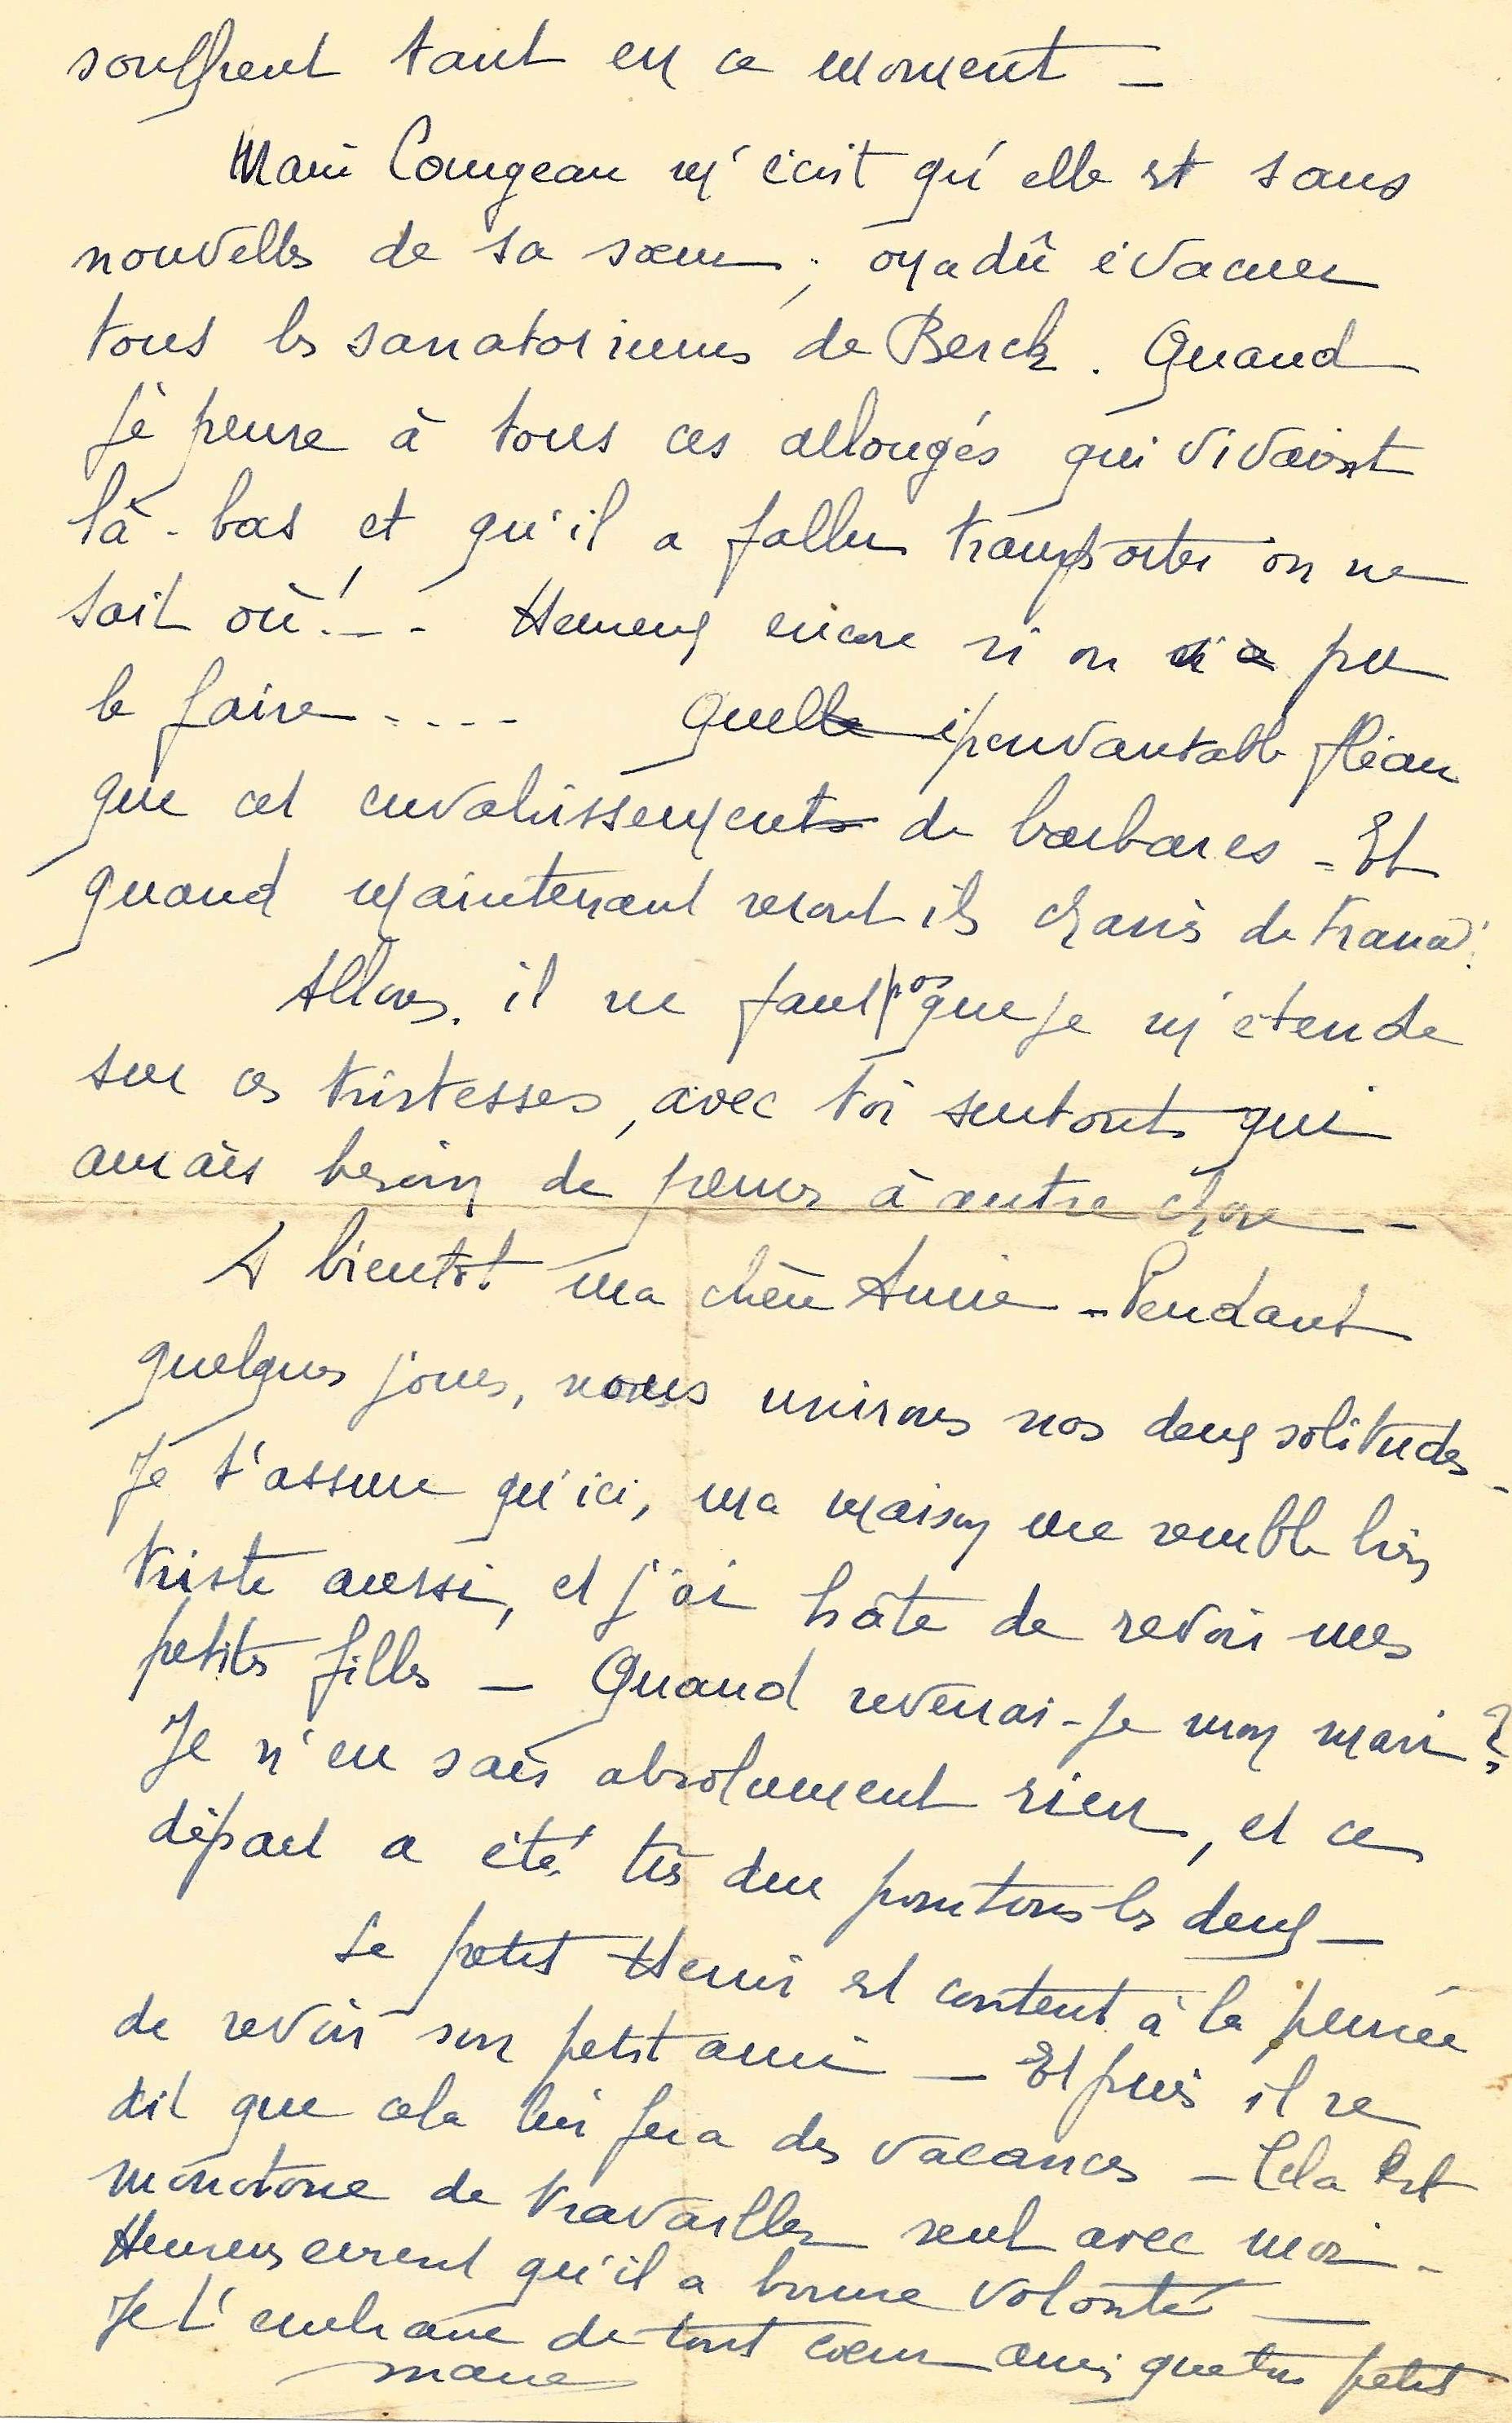 souffrent tant en ce moment –
Marie Cougeau m'écrit qu'elle est sans
nouvelles de sa sœur ; on a dû évacuer
tous les sanatoriums de Berck. Quand
je pense à tous ces allongés qui vivaient
là-bas et qu'il a fallu transporter on ne
sait où ! – - Heureux encore si on a pu
le faire .... Quelle épouvantable fléau
que cet envahissements de barbares – Et
quand maintenant seront ils chassés de France ?
Allons, il ne faut pas que je m'étende
sur ces tristesses, avec toi surtout qui
aurais besoin de penser à autre chose –
A bientôt ma chère Annie – Pendant
quelques jours, nous unirons nos deux solitudes –
Je t'assure qu'ici, ma maison me semble bien
triste aussi, et j'ai hâte de revoir mes
petites filles – Quand reverrai-je mon mari ?
Je n'en sais absolument rien, et ce
départ a été très dur pour tous les deux –
Le petit Henri est content à la pensée
de revoir son petit ami – Et puis il se
dit que cela lui fera des vacances – Cela est
monotone de travailler seul avec moi –
Heureusement qu'il a bonne volonté –
Je t'embrasse de tout cœur ainsi que ton petit